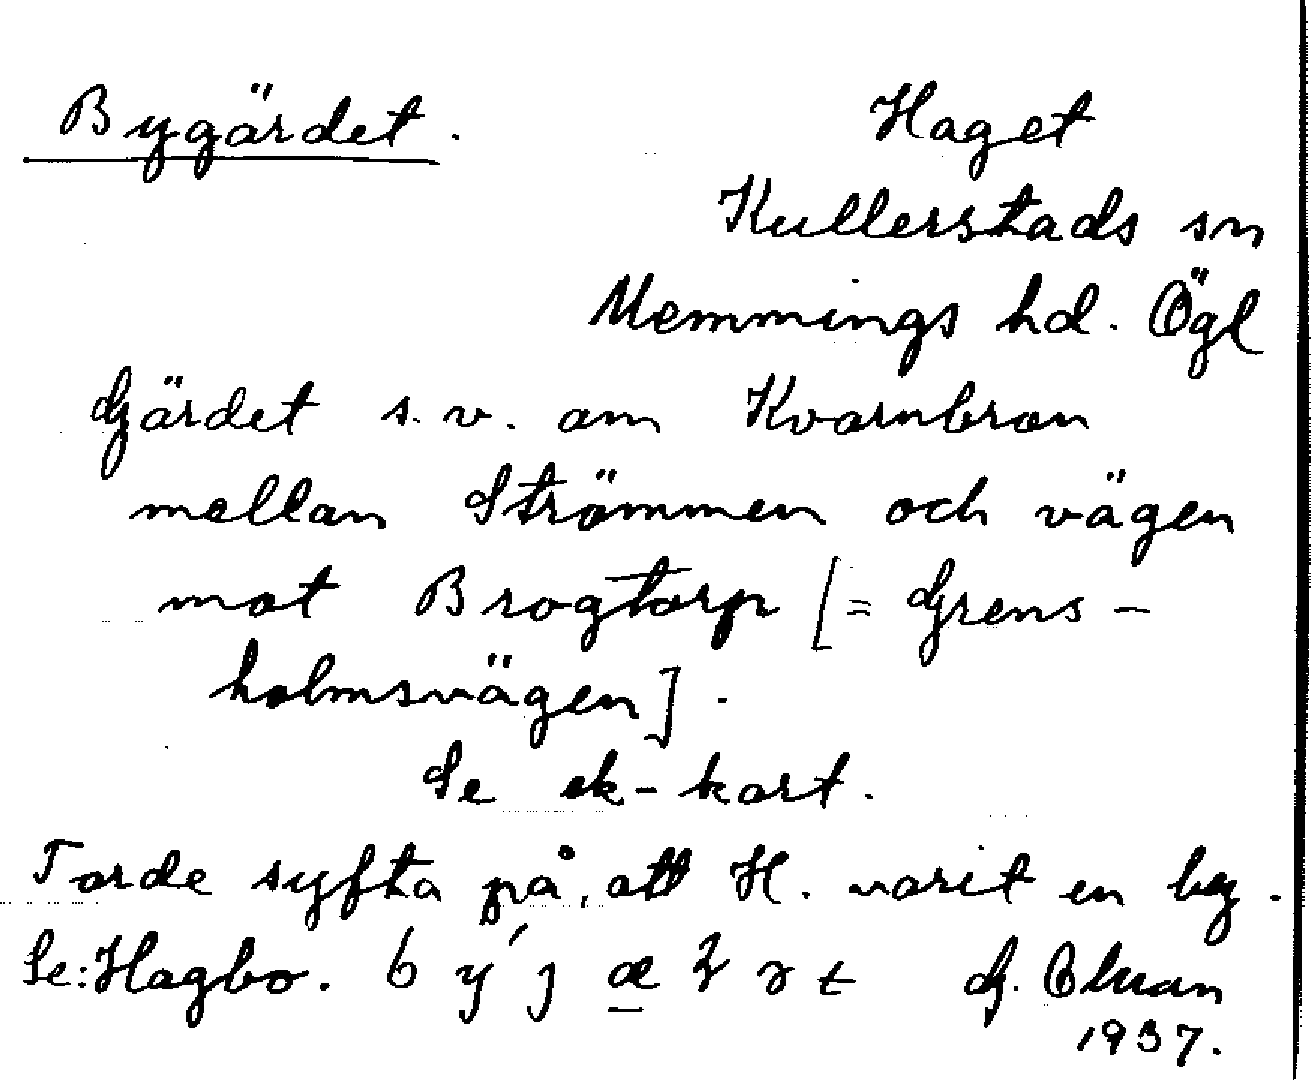 Bygärdet. Haget
Kullerstads sn
Memmings hd. Ögl
Gärdet s.v. om Kvarnbron
mellan Strömmen och vägen
mot Brogtorp [= Grens-
holmsvägen].
Se ek-kart.
Torde syfta på, att H. varit en by.
Se: Hagbo. G.
1937.